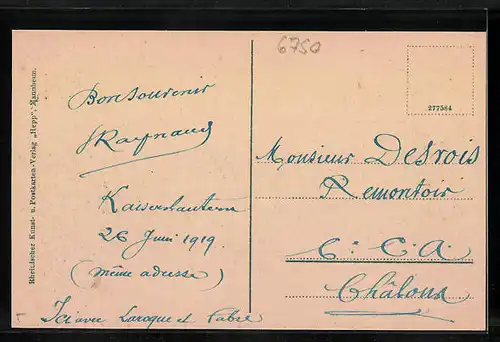 6750
Rheinischer Kunst- u. Postkarten-Verlag „Hepp“, Mannheim.
Bon souvenir
Raynaud
Kaiserslautern
26 Juin 1919
(même adresse)
Ici avec Laroque et Fabre
277584
Monsieur Desrois
Remontoir
C. A.
Châlons